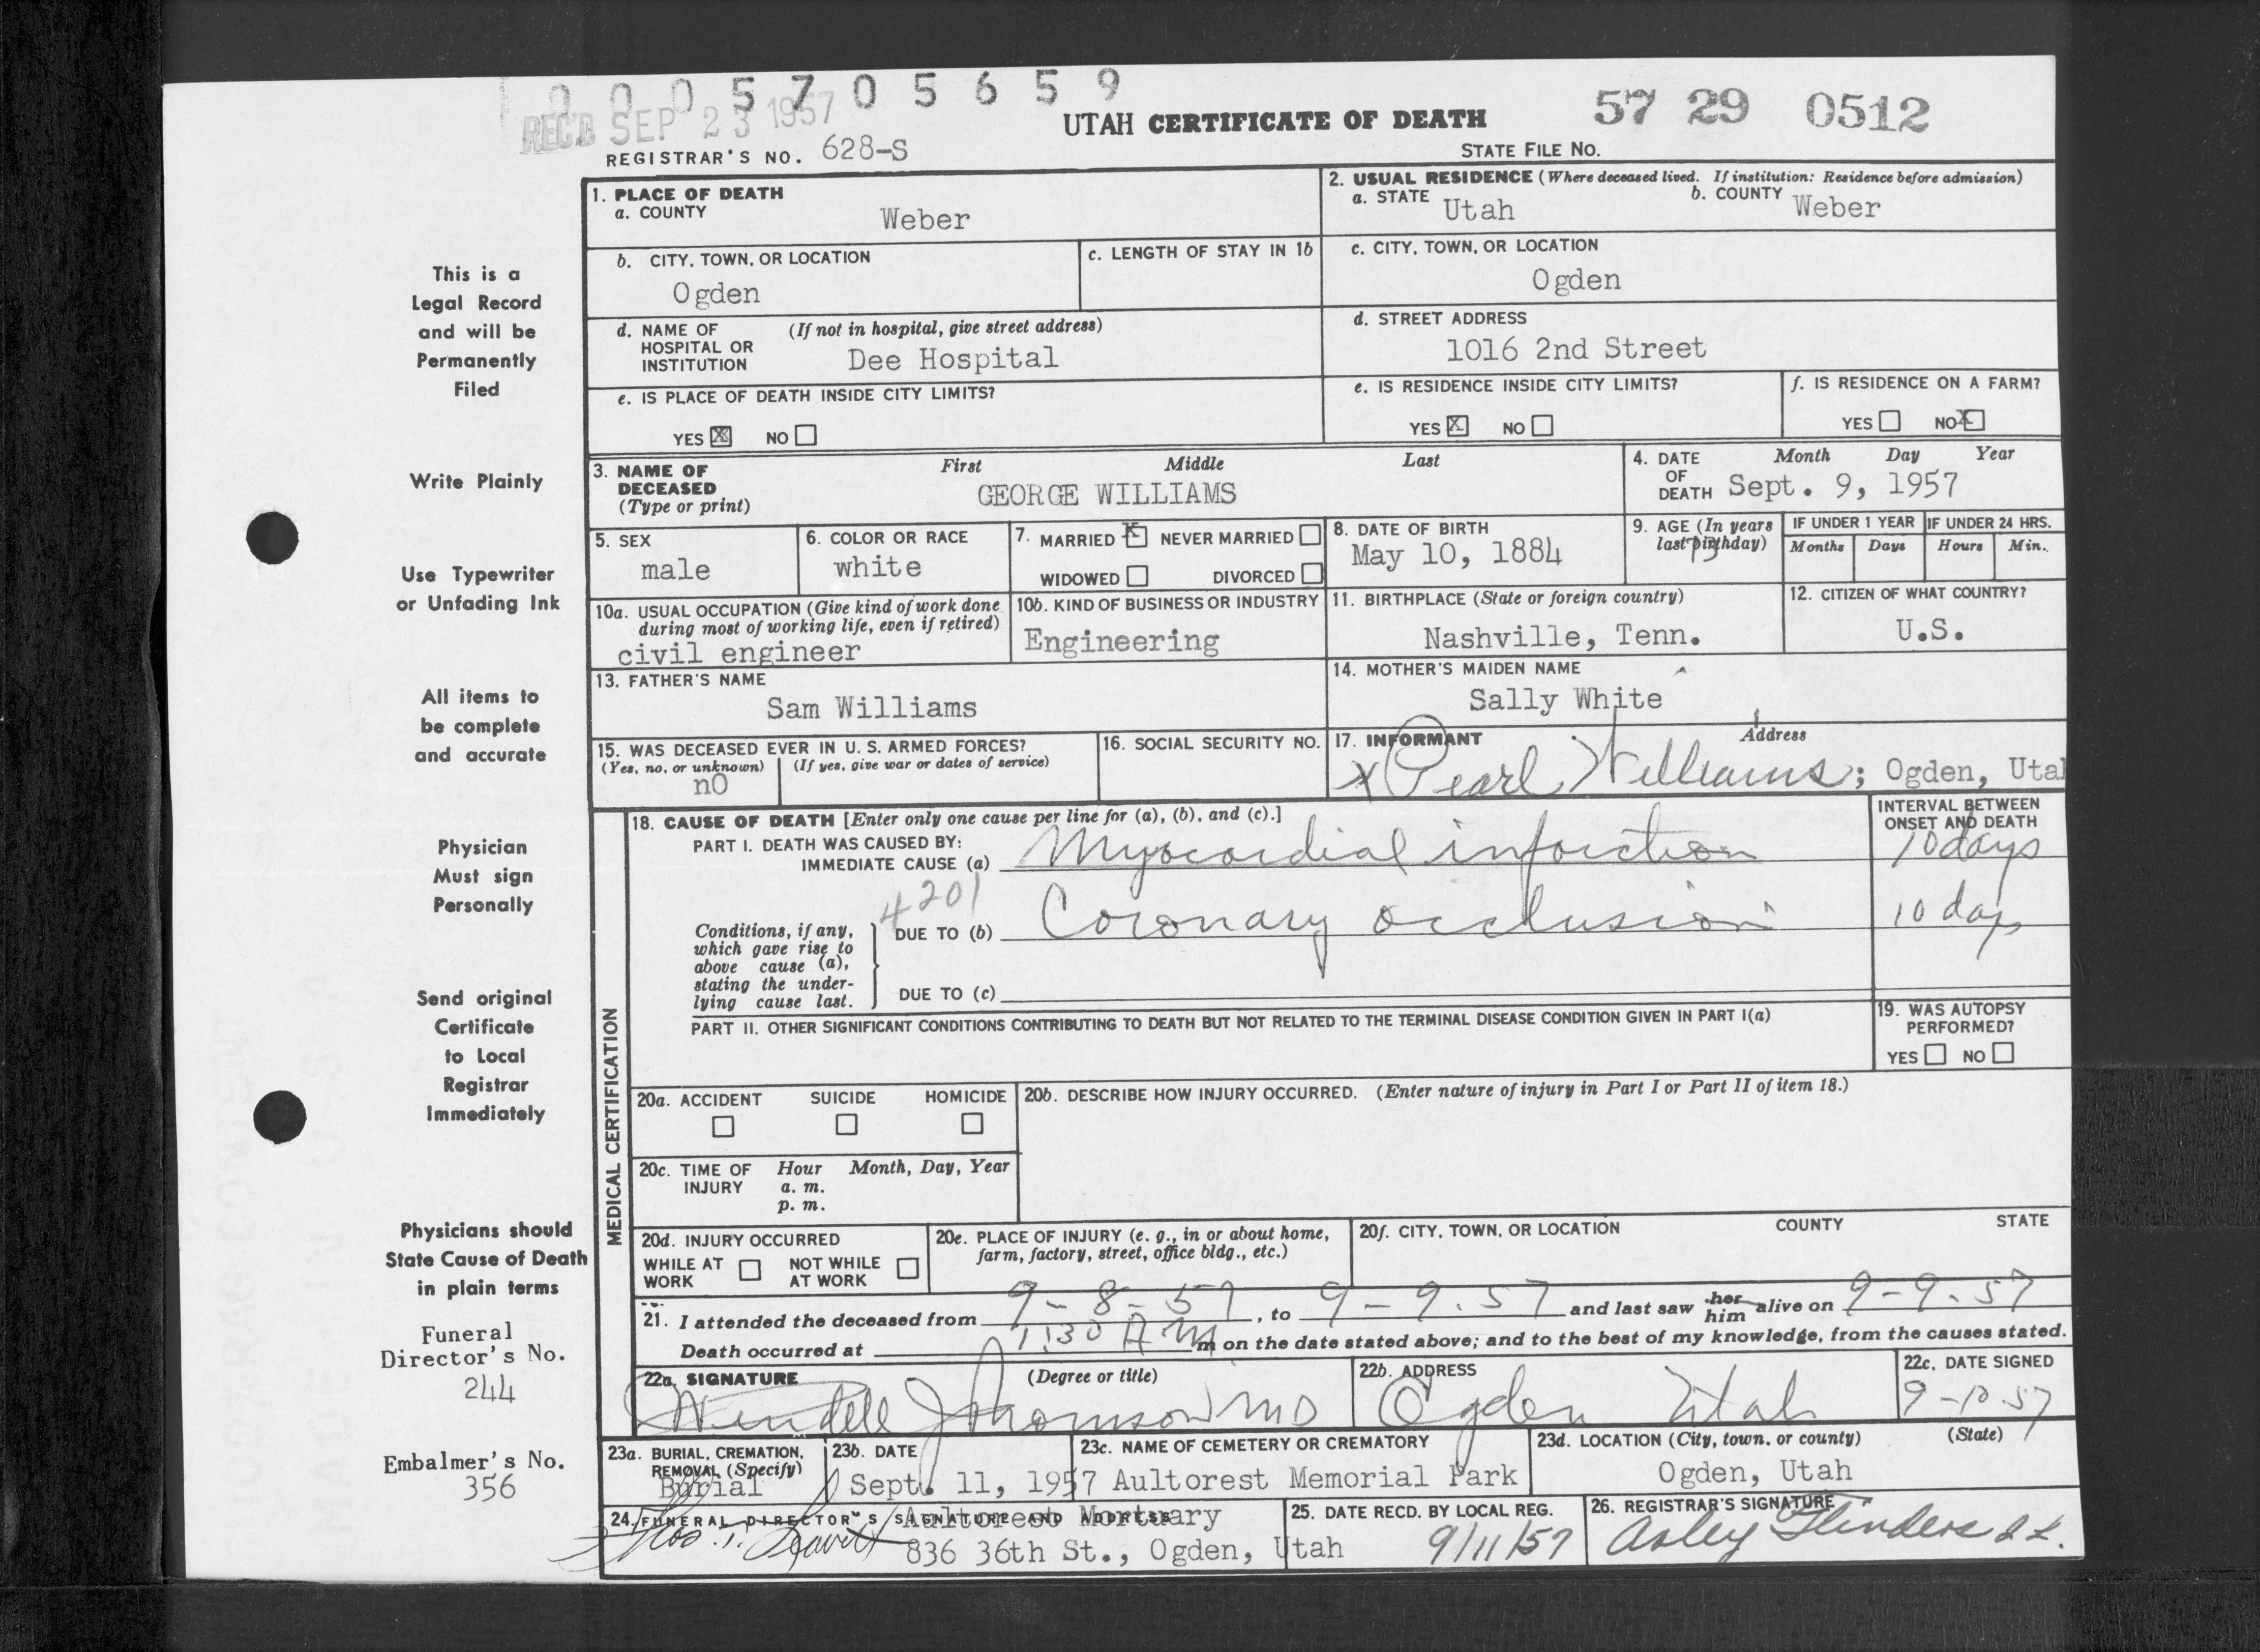 0005705659
REC'D SEP 23 1957
UTAH CERTIFICATE OF DEATH
57 29 0512
REGISTRAR'S NO. 628-S
STATE FILE NO.
This is a
Legal Record
and will be
Permanently
Filed
Write Plainly
Use Typewriter
or Unfading Ink
All items to
be complete
and accurate
Physician
Must sign
Personally
Send original
Certificate
to Local
Registrar
Immediately
Physicians should
State Cause of Death
in plain terms
Funeral
Director's No.
244
Embalmer's No.
356
1. PLACE OF DEATH
a. COUNTY
Weber
2. USUAL RESIDENCE (Where deceased lived. If institution: Residence before admission)
a. STATE Utah b. COUNTY Weber
b. CITY, TOWN, OR LOCATION
Ogden
c. LENGTH OF STAY IN 1b
c. CITY, TOWN, OR LOCATION
Ogden
d. NAME OF HOSPITAL OR INSTITUTION (If not in hospital, give street address)
Dee Hospital
d. STREET ADDRESS
1016 2nd Street
e. IS PLACE OF DEATH INSIDE CITY LIMITS?
YES X NO
e. IS RESIDENCE INSIDE CITY LIMITS?
YES X NO
f. IS RESIDENCE ON A FARM?
YES NO X
3. NAME OF DECEASED (Type or print)
First Middle Last
GEORGE WILLIAMS
4. DATE OF DEATH Month Day Year
Sept. 9, 1957
5. SEX
male
6. COLOR OR RACE
white
7. MARRIED X NEVER MARRIED
WIDOWED DIVORCED
8. DATE OF BIRTH
May 10, 1884
9. AGE (In years last birthday)
73
IF UNDER 1 YEAR IF UNDER 24 HRS.
Months Days Hours Min.
10a. USUAL OCCUPATION (Give kind of work done during most of working life, even if retired)
civil engineer
10b. KIND OF BUSINESS OR INDUSTRY
Engineering
11. BIRTHPLACE (State or foreign country)
Nashville, Tenn.
12. CITIZEN OF WHAT COUNTRY?
U.S.
13. FATHER'S NAME
Sam Williams
14. MOTHER'S MAIDEN NAME
Sally White
15. WAS DECEASED EVER IN U. S. ARMED FORCES?
(Yes, no, or unknown) (If yes, give war or dates of service)
nO
16. SOCIAL SECURITY NO.
17. INFORMANT Address
x Pearl Williams; Ogden, Utah
MEDICAL CERTIFICATION
18. CAUSE OF DEATH [Enter only one cause per line for (a), (b), and (c).]
INTERVAL BETWEEN ONSET AND DEATH
PART I. DEATH WAS CAUSED BY:
IMMEDIATE CAUSE (a) Myocardial infarction 10 days
4201
Conditions, if any, which gave rise to above cause (a), stating the underlying cause last.
DUE TO (b) Coronary occlusion 10 days
DUE TO (c)
PART II. OTHER SIGNIFICANT CONDITIONS CONTRIBUTING TO DEATH BUT NOT RELATED TO THE TERMINAL DISEASE CONDITION GIVEN IN PART I(a)
19. WAS AUTOPSY PERFORMED?
YES NO
20a. ACCIDENT SUICIDE HOMICIDE
20b. DESCRIBE HOW INJURY OCCURRED. (Enter nature of injury in Part I or Part II of item 18.)
20c. TIME OF INJURY Hour Month, Day, Year
a. m.
p. m.
20d. INJURY OCCURRED
WHILE AT WORK NOT WHILE AT WORK
20e. PLACE OF INJURY (e. g., in or about home, farm, factory, street, office bldg., etc.)
20f. CITY, TOWN, OR LOCATION COUNTY STATE
21. I attended the deceased from 9-8-57, to 9-9-57 and last saw her him alive on 9-9-57
Death occurred at 1:30 A M m on the date stated above; and to the best of my knowledge, from the causes stated.
22a. SIGNATURE (Degree or title)
Wendell J Thomson MD
22b. ADDRESS
Ogden Utah
22c. DATE SIGNED
9-10-57
23a. BURIAL, CREMATION, REMOVAL (Specify)
Burial
23b. DATE
Sept. 11, 1957
23c. NAME OF CEMETERY OR CREMATORY
Aultorest Memorial Park
23d. LOCATION (City, town, or county) (State)
Ogden, Utah
24. FUNERAL DIRECTOR'S SIGNATURE AND ADDRESS
Aultorest Mortuary
836 36th St., Ogden, Utah
25. DATE RECD. BY LOCAL REG.
9/11/57
26. REGISTRAR'S SIGNATURE
Flinders